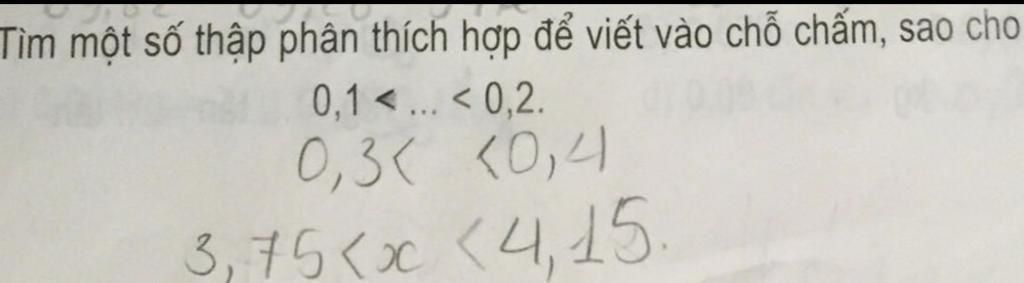 Tìm một số thập phân thích hợp để viết vào chỗ chấm, sao cho
0,1 < ... < 0,2.
0,3< <0,4
3,75<x <4,15.